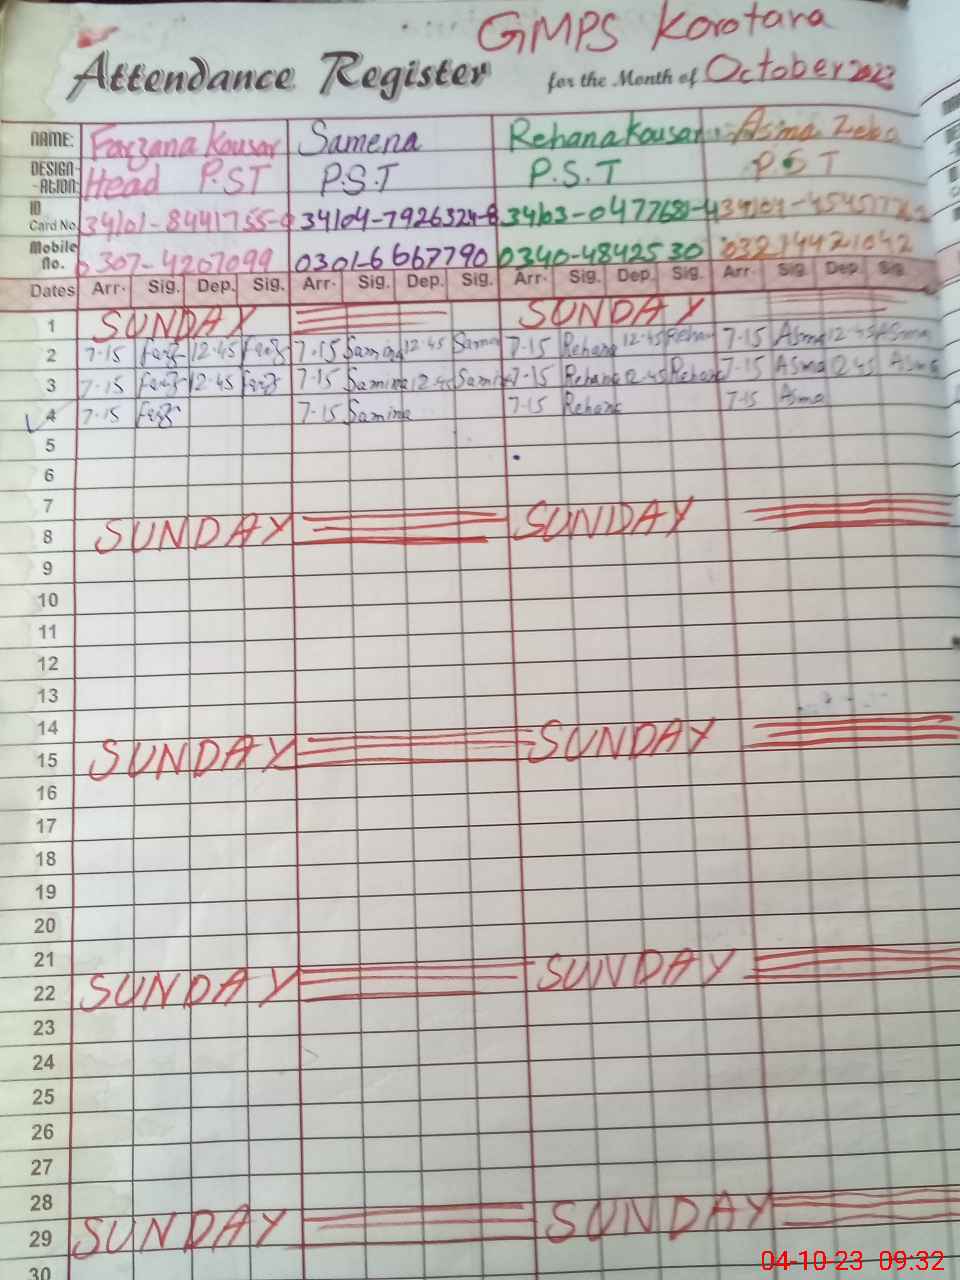 GMPS Korotana
Attendance Register for the Month of October 2023
NAME: Farzana Kousar Samena Rehana Kousar Asma Zeba
DESIGN-ATION: Head P.ST P.S.T P.S.T P.S.T
ID Card No. 34101-8441755-9 34104-7926324-8
Mobile No. 0307-4207099 0301-6667790 0340-4842530 03214421042
Dates Arr. Sig. Dep. Sig. Arr. Sig. Dep. Sig. Arr. Sig. Dep. Sig. Arr. Sig. Dep. Sig.
1 SUNDAY SUNDAY
2 7-15 Farz 12-45 Farz 7-15 Samina 12-45 Samina 7-15 Rehana 12-45 Rehana 7-15 Asma 12-45 Asma
3 7-15 Farz 12-45 Farz 7-15 Samina 12-45 Samina 7-15 Rehana 12-45 Rehana 7-15 Asma 12 45 Asma
4 7-15 Farz 7-15 Samina 7-15 Rehana 7-15 Asma
5
6
7
8 SUNDAY SUNDAY
9
10
11
12
13
14
15 SUNDAY SUNDAY
16
17
18
19
20
21
22 SUNDAY SUNDAY
23
24
25
26
27
28
29 SUNDAY SUNDAY
30
04-10-23 09:32